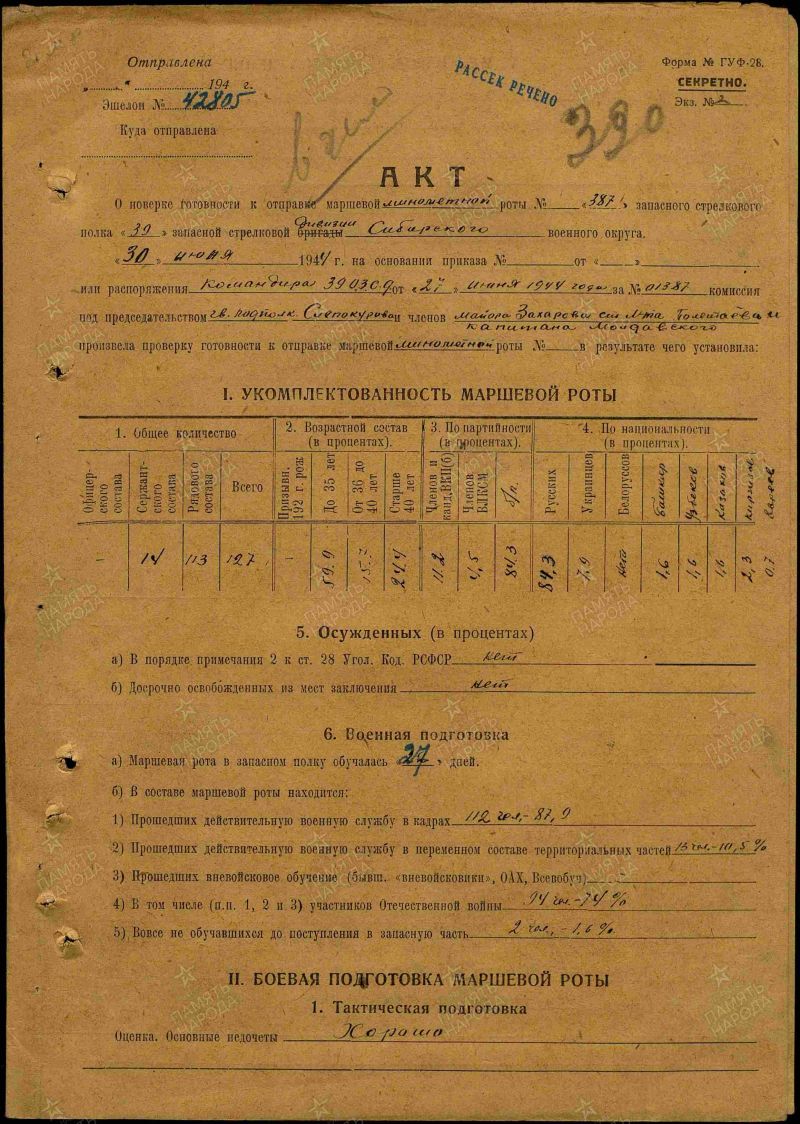 Отправлена
„ “ 194 г.
Эшелон № 42805
Куда отправлена
РАССЕКРЕЧЕНО
Форма № ГУФ-28.
СЕКРЕТНО.
Экз. № 2
390
АКТ
О поверке готовности к отправке маршевой минометной роты № «387» запасного стрелкового
полка «39» запасной стрелковой бригады дивизии Сибирского военного округа.
«30» июня 1944 г. на основании приказа № от « »
или распоряжения Командира 39 О.З.С.Д. от «27» июня 1944 года за № 01387 комиссия
под председательством гв. подполк. Слепокуров и членов майора Захарова ст. л-та и
капитана Молдавского
произвела проверку готовности к отправке маршевой минометной роты № в результате чего установила:
I. УКОМПЛЕКТОВАННОСТЬ МАРШЕВОЙ РОТЫ
1. Общее количество
2. Возрастной состав (в процентах).
3. По партийности (в процентах).
4. По национальности (в процентах).
Офицерского состава
Сержантского состава
Рядового состава
Всего
Призывн. 192 г. рож
До 35 лет
От 36 до 40 лет
Старше 40 лет
Членов и канд. ВКП(б)
Членов ВЛКСМ
б/п.
Русских
Украинцев
Белоруссов
Башкир
Узбеков
Казахов
киргизов
- 14 113 127 - 59,9 15,7 24,4 11,2 4,5 84,3 84,3 7,9 нет 1,6 1,6 1,6 2,3 0,7
5. Осужденных (в процентах)
а) В порядке примечания 2 к ст. 28 Угол. Код. РСФСР нет
б) Досрочно освобожденных из мест заключения нет
6. Военная подготовка
а) Маршевая рота в запасном полку обучалась «27» дней.
б) В составе маршевой роты находится:
1) Прошедших действительную военную службу в кадрах 112 чел.- 87,9
2) Прошедших действительную военную службу в переменном составе территориальных частей 13 чел.-10,5%
3) Прошедших вневойсковое обучение (бывш. «вневойсковики», ОАХ, Всевобуч)
4) В том числе (п.п. 1, 2 и 3) участников Отечественной войны 94 чел.-74%
5) Вовсе не обучавшихся до поступления в запасную часть 2 чел.-1,6%
II. БОЕВАЯ ПОДГОТОВКА МАРШЕВОЙ РОТЫ
1. Тактическая подготовка
Оценка. Основные недочеты Хорошо